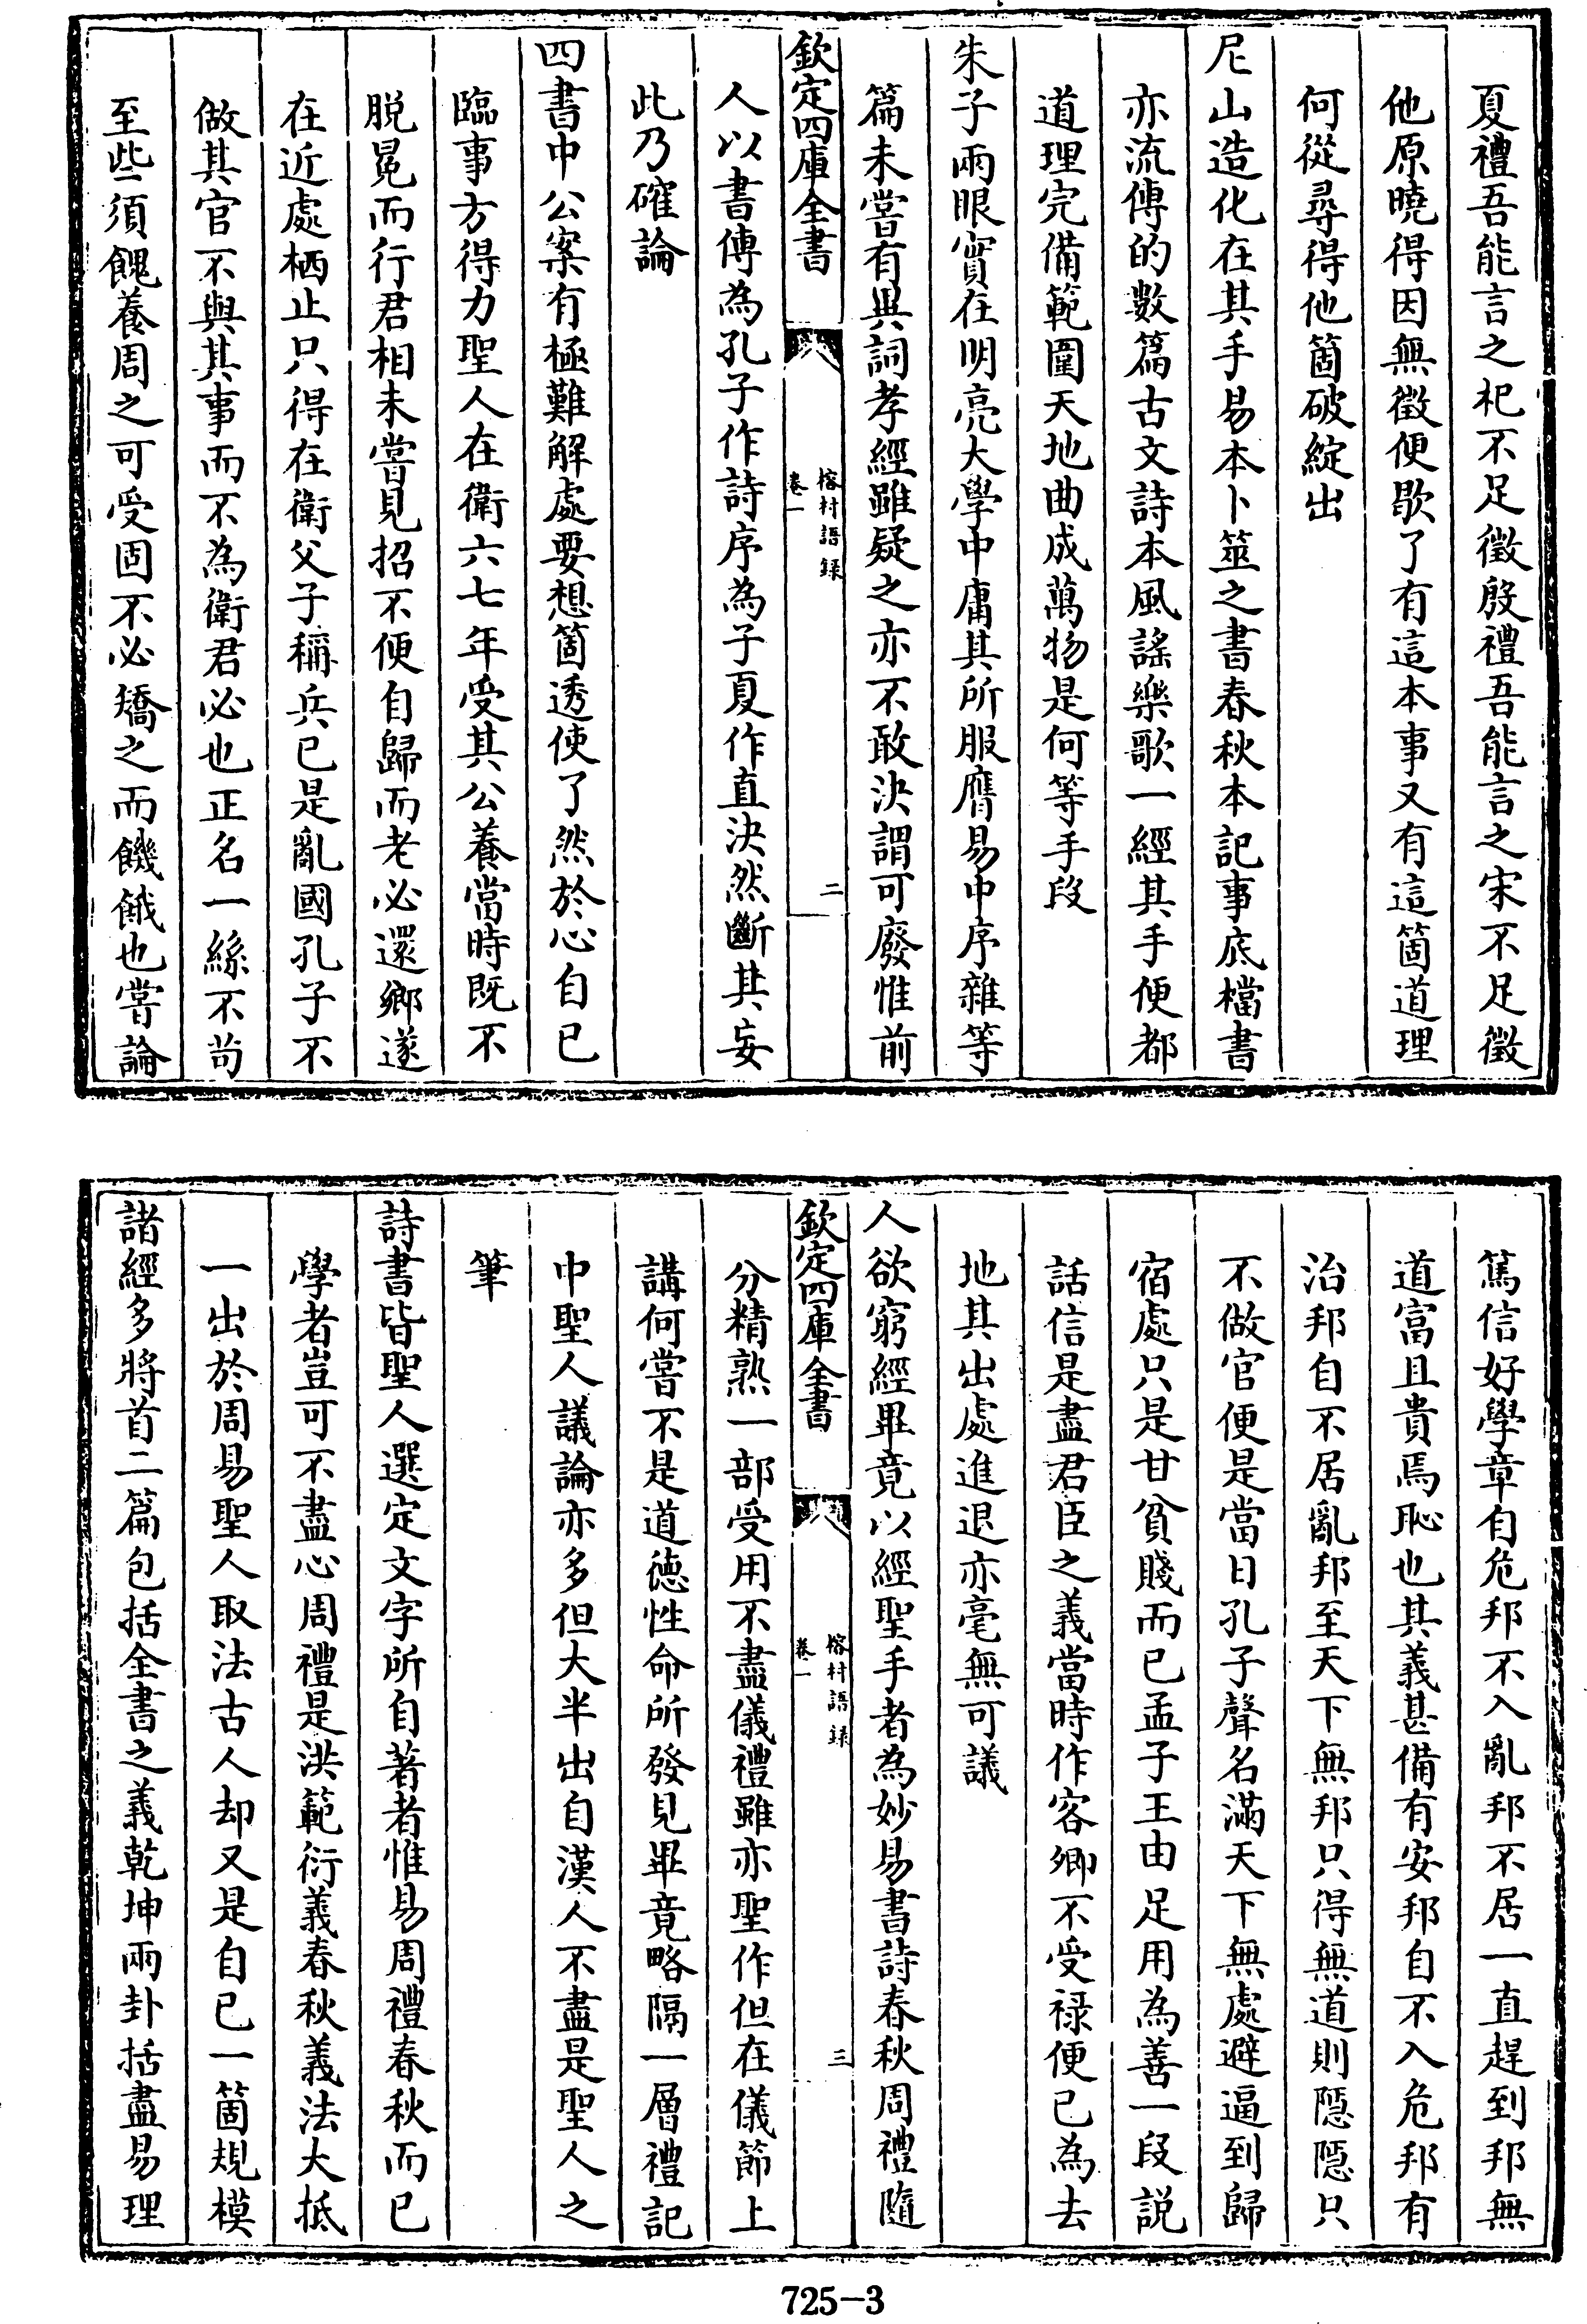 夏禮吾能言之杞不足徵殷禮吾能言之宋不足徵
他原曉得因無徵便歇了有這本事又有這箇道理
何從尋得他箇破綻出
尼山造化在其手易本卜筮之書春秋本記事底檔書
亦流傳的數篇古文詩本風謠樂歌一經其手便都
道理完備範圍天地曲成萬物是何等手段
朱子兩眼實在明亮大學中庸其所服膺易中序雜等
篇未嘗有異詞孝經雖疑之亦不敢決謂可廢惟前
欽定四庫全書
榕村語錄
卷一
二
人以書傳為孔子作詩序為子夏作直決然斷其妄
此乃確論
四書中公案有極難解處要想箇透使了然於心自已
臨事方得力聖人在衛六七年受其公養當時既不
脱冕而行君相未嘗見招不便自歸而老必還鄉遂
在近處栖止只得在衛父子稱兵已是亂國孔子不
做其官不與其事而不為衛君必也正名一絲不苟
至些須餽養周之可受固不必矯之而饑餓也嘗論
篤信好學章自危邦不入亂邦不居一直趕到邦無
道富且貴焉恥也其義甚備有安邦自不入危邦有
治邦自不居亂邦至天下無邦只得無道則隱隱只
不做官便是當日孔子聲名滿天下無處避逼到歸
宿處只是甘貧賤而已孟子王由足用為善一段説
話信是盡君臣之義當時作客卿不受祿便已為去
地其出處進退亦毫無可議
人欲窮經畢竟以經聖手者為妙易書詩春秋周禮隨
欽定四庫全書
榕村語錄
卷一
三
分精熟一部受用不盡儀禮雖亦聖作但在儀節上
講何嘗不是道德性命所發見畢竟略隔一層禮記
中聖人議論亦多但大半出自漢人不盡是聖人之
筆
詩書皆聖人選定文字所自著者惟易周禮春秋而已
學者豈可不盡心周禮是洪範衍義春秋義法大抵
一出於周易聖人取法古人却又是自已一箇規模
諸經多將首二篇包括全書之義乾坤兩卦括盡易理
725-3